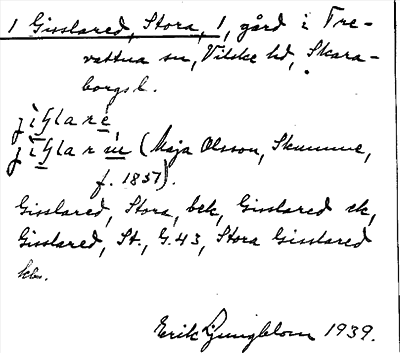 1 Gisslared, Stora, 1, gård i Tre-
vattna sn, Vilske hd, Skara-
borgs l.
(Maja Olsson, Skumme,
f. 1857).
Gisslared, Stora, bek, Gisslared sk,
Gisslared, St., G.43, Stora Gisslared
kbn.
Erik Ljungblom 1939.